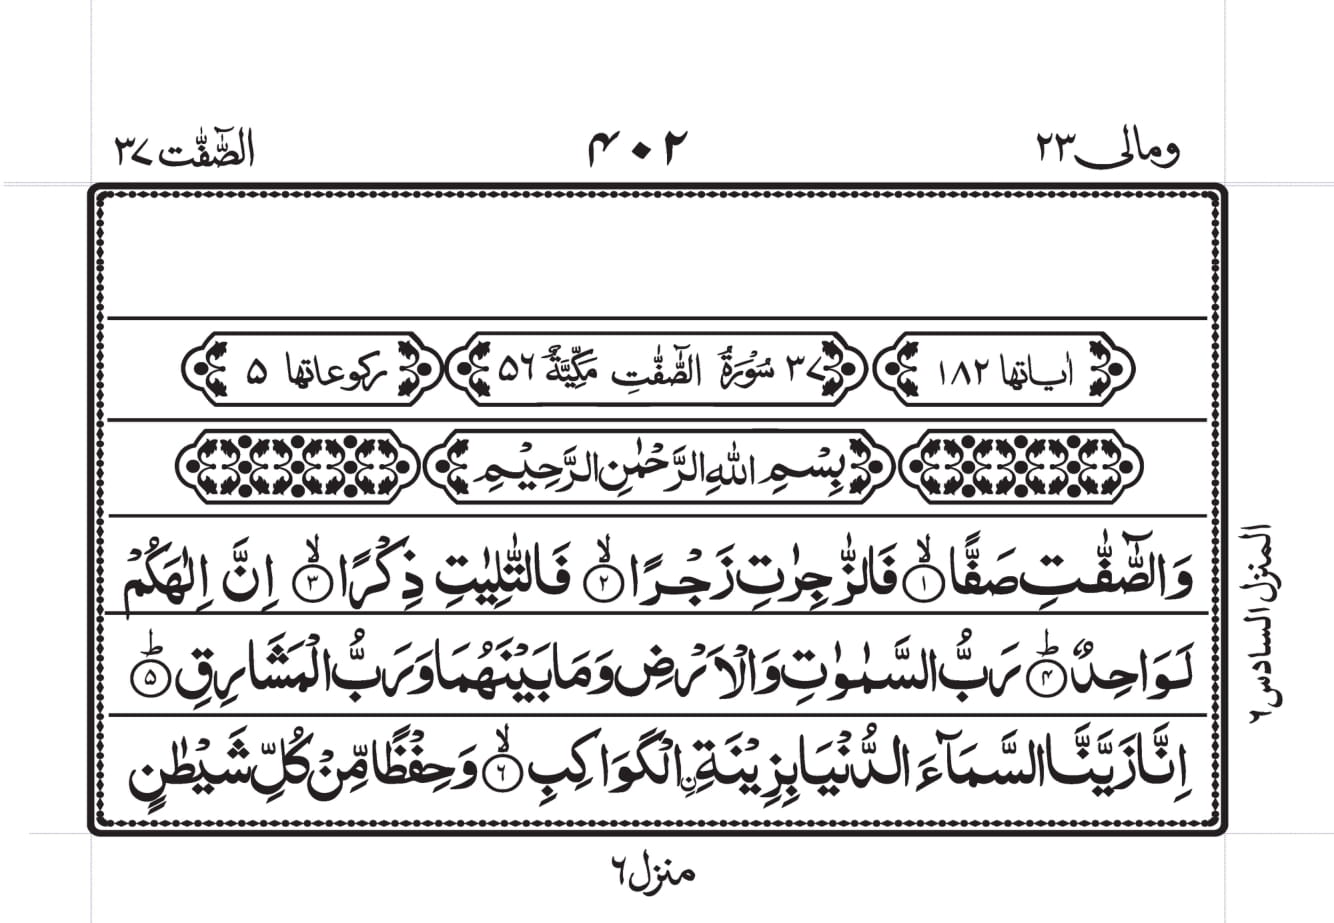 ومالی ۲۳
۴۰۲
الصّٰٓفّٰت ۳۷
اٰیاتها ۱۸۲
۳۷ سُوْرَةُ الصّٰٓفّٰتِ مَكِّیَّةٌ ۵۶
ركوعاتها ۵
بِسْمِ اللّٰهِ الرَّحْمٰنِ الرَّحِیْمِ
وَالصّٰٓفّٰتِ صَفًّا ۙ۱ فَالزّٰجِرٰتِ زَجْرًا ۙ۲ فَالتّٰلِیٰتِ ذِكْرًا ۙ۳ اِنَّ اِلٰهَكُمْ
لَوَاحِدٌ ؕ۴ رَبُّ السَّمٰوٰتِ وَالْاَرْضِ وَمَا بَیْنَهُمَا وَرَبُّ الْمَشَارِقِ ؕ۵
اِنَّا زَیَّنَّا السَّمَآءَ الدُّنْیَا بِزِیْنَةِ ِ۟الْكَوَاكِبِ ۙ۶ وَحِفْظًا مِّنْ كُلِّ شَیْطٰنٍ
المنزل السادس ۶
منزل ۶